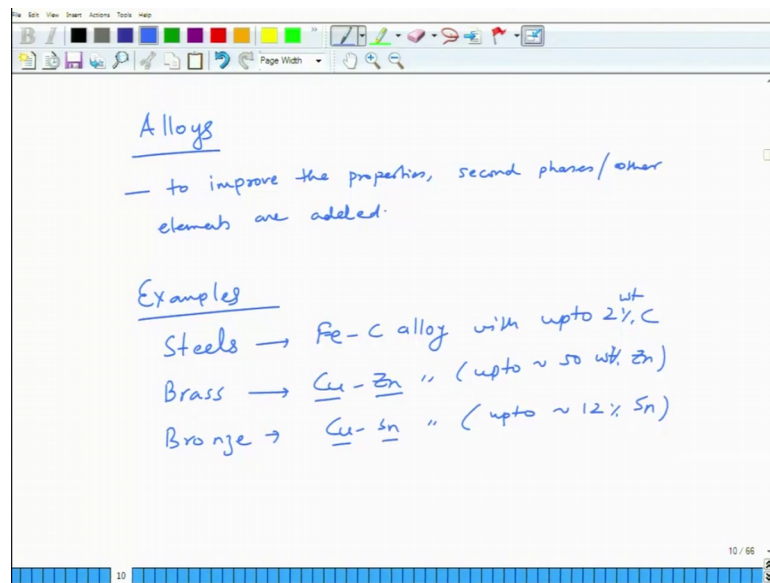 File Edit View Insert Actions Tools Help
B I
Page Width
Alloys
— to improve the properties, second phases/other
elements are added.
Examples
Steels → Fe-C alloy with upto 2 wt % C
Brass → Cu-Zn " (upto ~ 50 wt% Zn)
Bronze → Cu-Sn " (upto ~ 12% Sn)
10 / 66
10